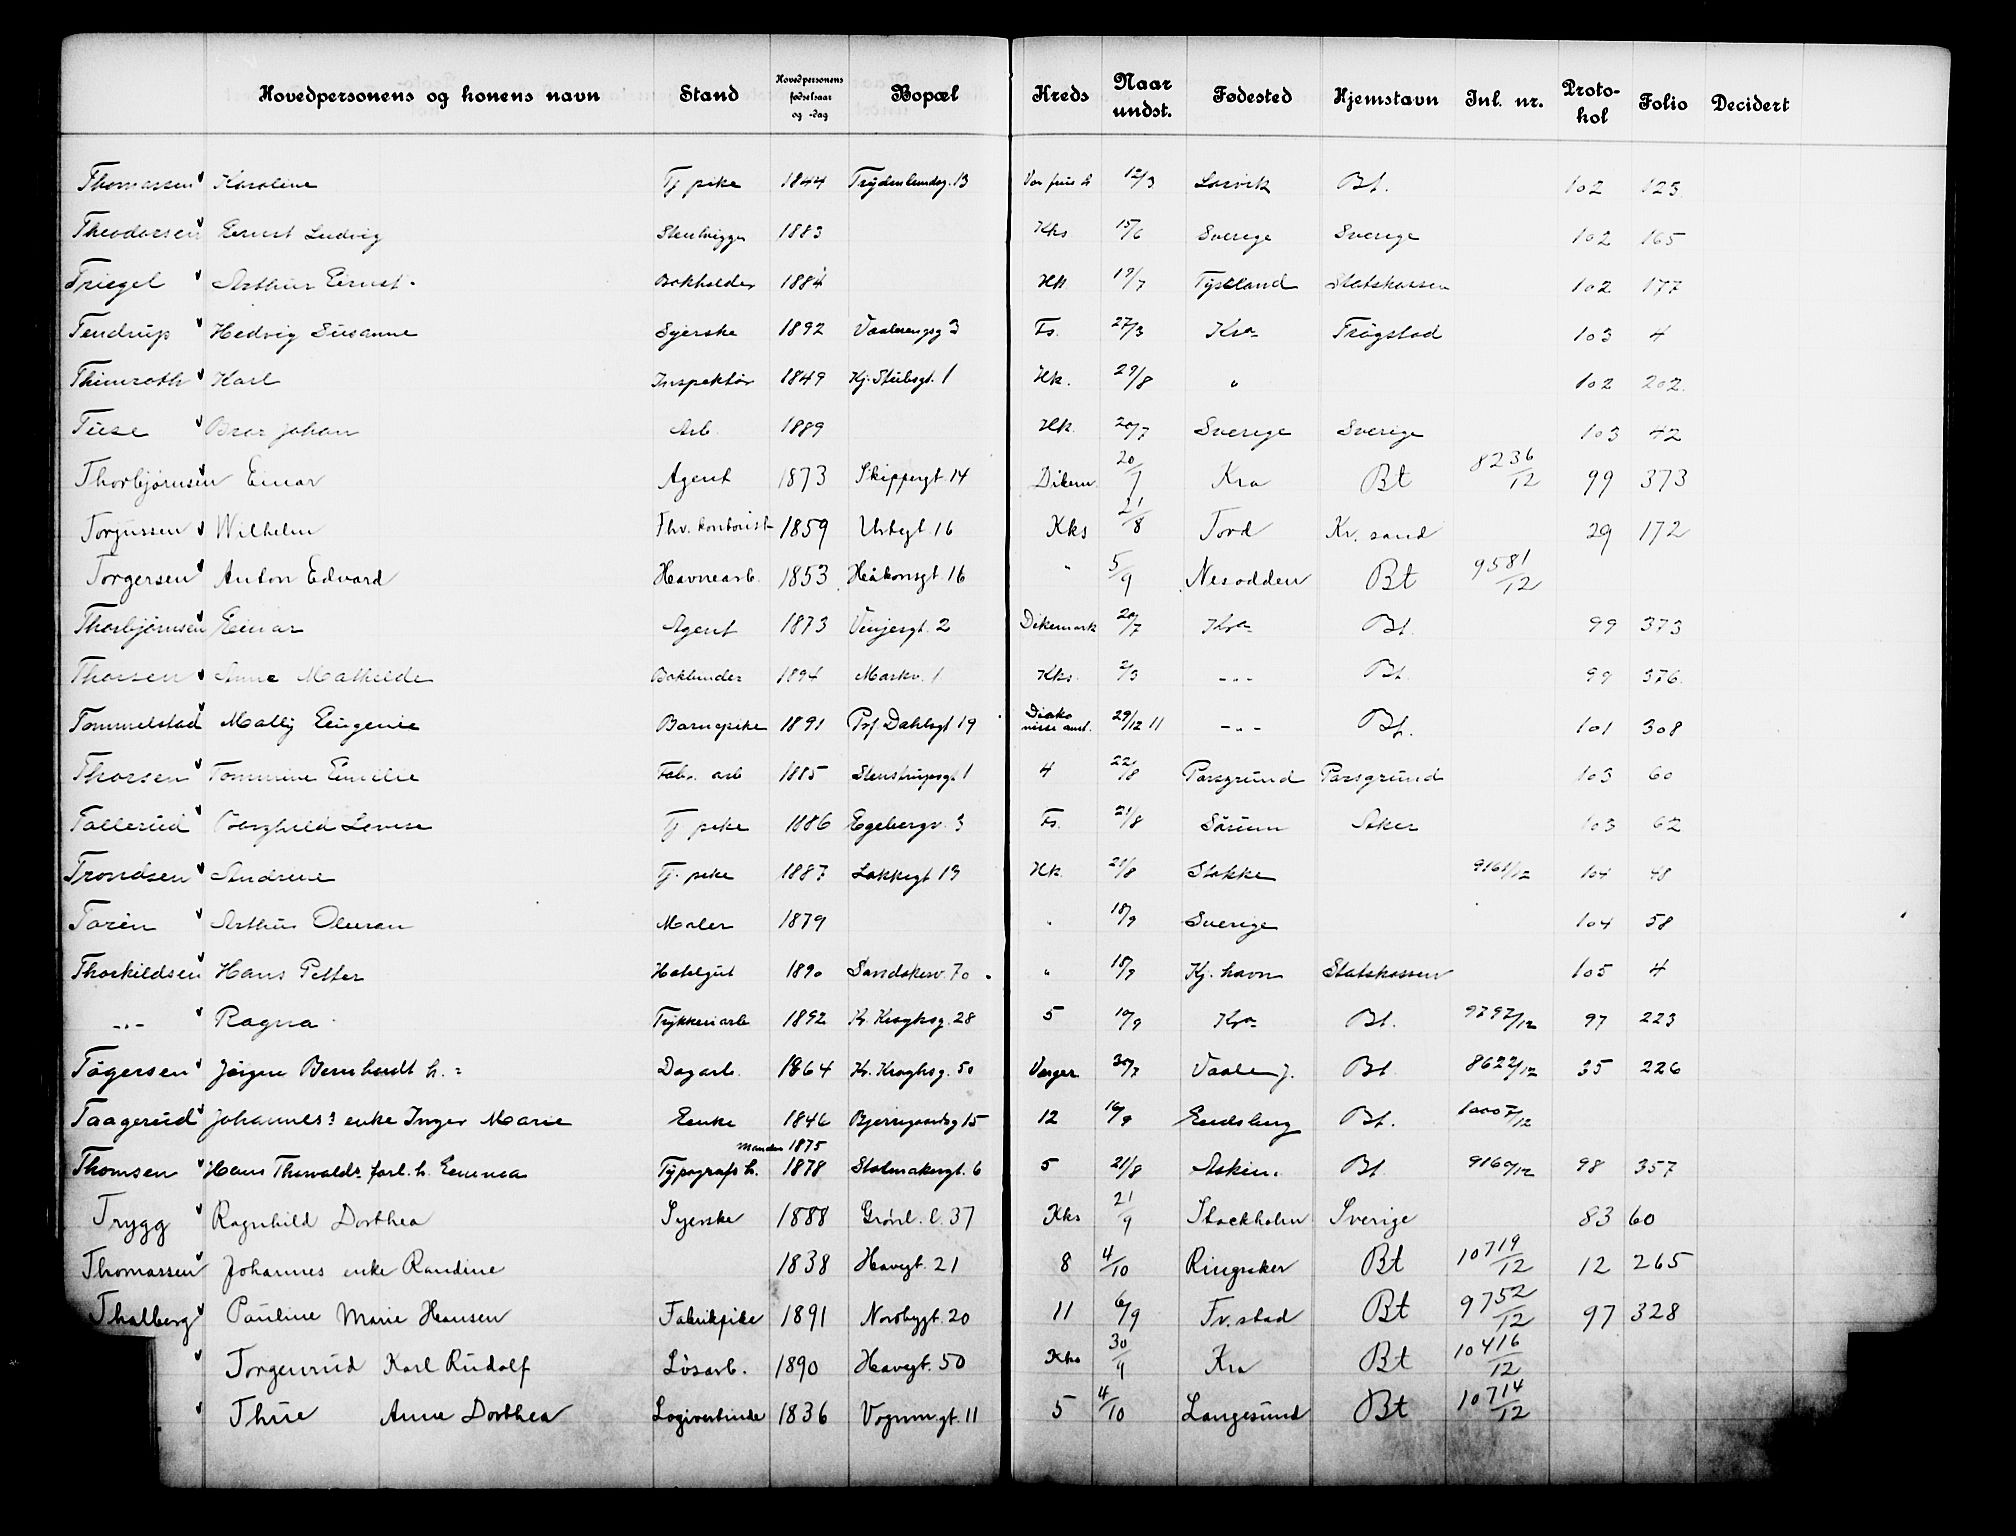 Hovedpersonens og konens navn Stand Hovedpersonens fødselsaar og -dag Bopæl Kreds Naar undst. Fødested Hjemstavn Inl. nr. Protokol Folio Decidert
Thomassen Karoline Tj pike 1844 13 Vor frues h 12/3 Larvik Bt. 102 123
Theodorsen Ernst Ludvig Stenhugger 1883 Kks 15/6 Sverige Sverige 102 165
Triegel Arthur Ernst. Bokholder 1884 Hk. 19/7 Tyskland Statskassen 102 177
Tendrup Hedvig Susanne Syerske 1892 Vaalerengg 3 Fs. 27/3 Kra Trøgstad 103 4
Thimroth Karl Inspektør 1849 Kj. Stubsgt. 1 Hk. 29/8 " 102 202.
Tuse Bror Johan Arb. 1889 Hk. 20/7 Sverige Sverige 103 42
Thorbjørnsen Einar Agent 1873 Skippergt. 14 Dikem. 20/7 Kra Bt 8236/12 99 373
Torgussen Wilhelm Fhv. kontorist 1859 Urtegt 16 Kks 21/8 Kr. sand 29 172
Torgersen Anton Edvard Havnearb. 1853 Håkonsgt. 16 " 5/9 Nesodden Bt 9581/12
Thorbjørnsen Einar Agent 1873 Vinjesgt. 2 Dikemark 20/7 Kra Bt. 99 373
Thorsen Anne Mathilde Bokbinder 1894 Markv. 1 Kks. 2/3 -"- Bt. 99 376.
Tommelstad Mally Eugenie Barnepike 1891 Prf. Dahlsgt 19 Diakonisse anst. 29/12 11 -"- Bt. 101 308
Thorsen Tommine Emilie Fabr. arb 1885 Stenstrupsgt 1 4 22/8 Porsgrund Porsgrund 103 60
Tallerud Borghild Lovise Tj pike 1886 Egebergv. 3 Fs. 21/8 Sørum Aker 103 62
Trondsen Andrine Tj. pike 1887 Lakkegt 19 Hk. 21/8 Stokke 9161/12 104 48
Torén Arthur Maler 1879 " 18/9 Sverige 104 58
Thorkildsen Hans Petter Hotelgut 1890 Sandakerv. 70 " 18/9 Kj. havn Statskassen 105 4
-"- Ragna Trykkeriarb 1892 Kr. Kroghsg. 28 5 10/9 Kra Bt. 9797/12 97 223
Tøgersen Jørgen Bernhardt h. = Dagarb. 1864 Kr. Kroghsg. 50 Verger 30/7 Vaale j. Bt. 8622/12 35 226
Taagerud Johannes's enke Inger Marie Enke 1846 Bjerregaardsg 15 12 16/9 Eidsberg Bt. 10007/12
Manden 1875
Thomsen Hans Thorvalds forl. h. Emma Typografs h. 1878 Stolmakergt. 6 5 21/8 Askim. Bt 9160/12 98 357
Trygg Ragnhild Dorthea Syerske 1888 Grønl. l. 37 Kks 21/9 Stockholm Sverige 83 60
Thomassen Johannes enke Randine 1838 Havegt. 21 8 4/10 Ringsaker Bt 10719/12 12 265
Thalberg Pauline Marie Hansen Fabrikpike 1891 Nordbygt. 20 11 6/9 Fr. stad Bt 9752/12 97 328
Torgenrud Karl Rudolf Løsarb. 1890 Havegt. 50 Kks 30/9 Kra Bt 10416/12
Thue Anne Dorthea Logivertinde 1836 Vognm.gt. 11 5 4/10 Langesund Bt 10714/12